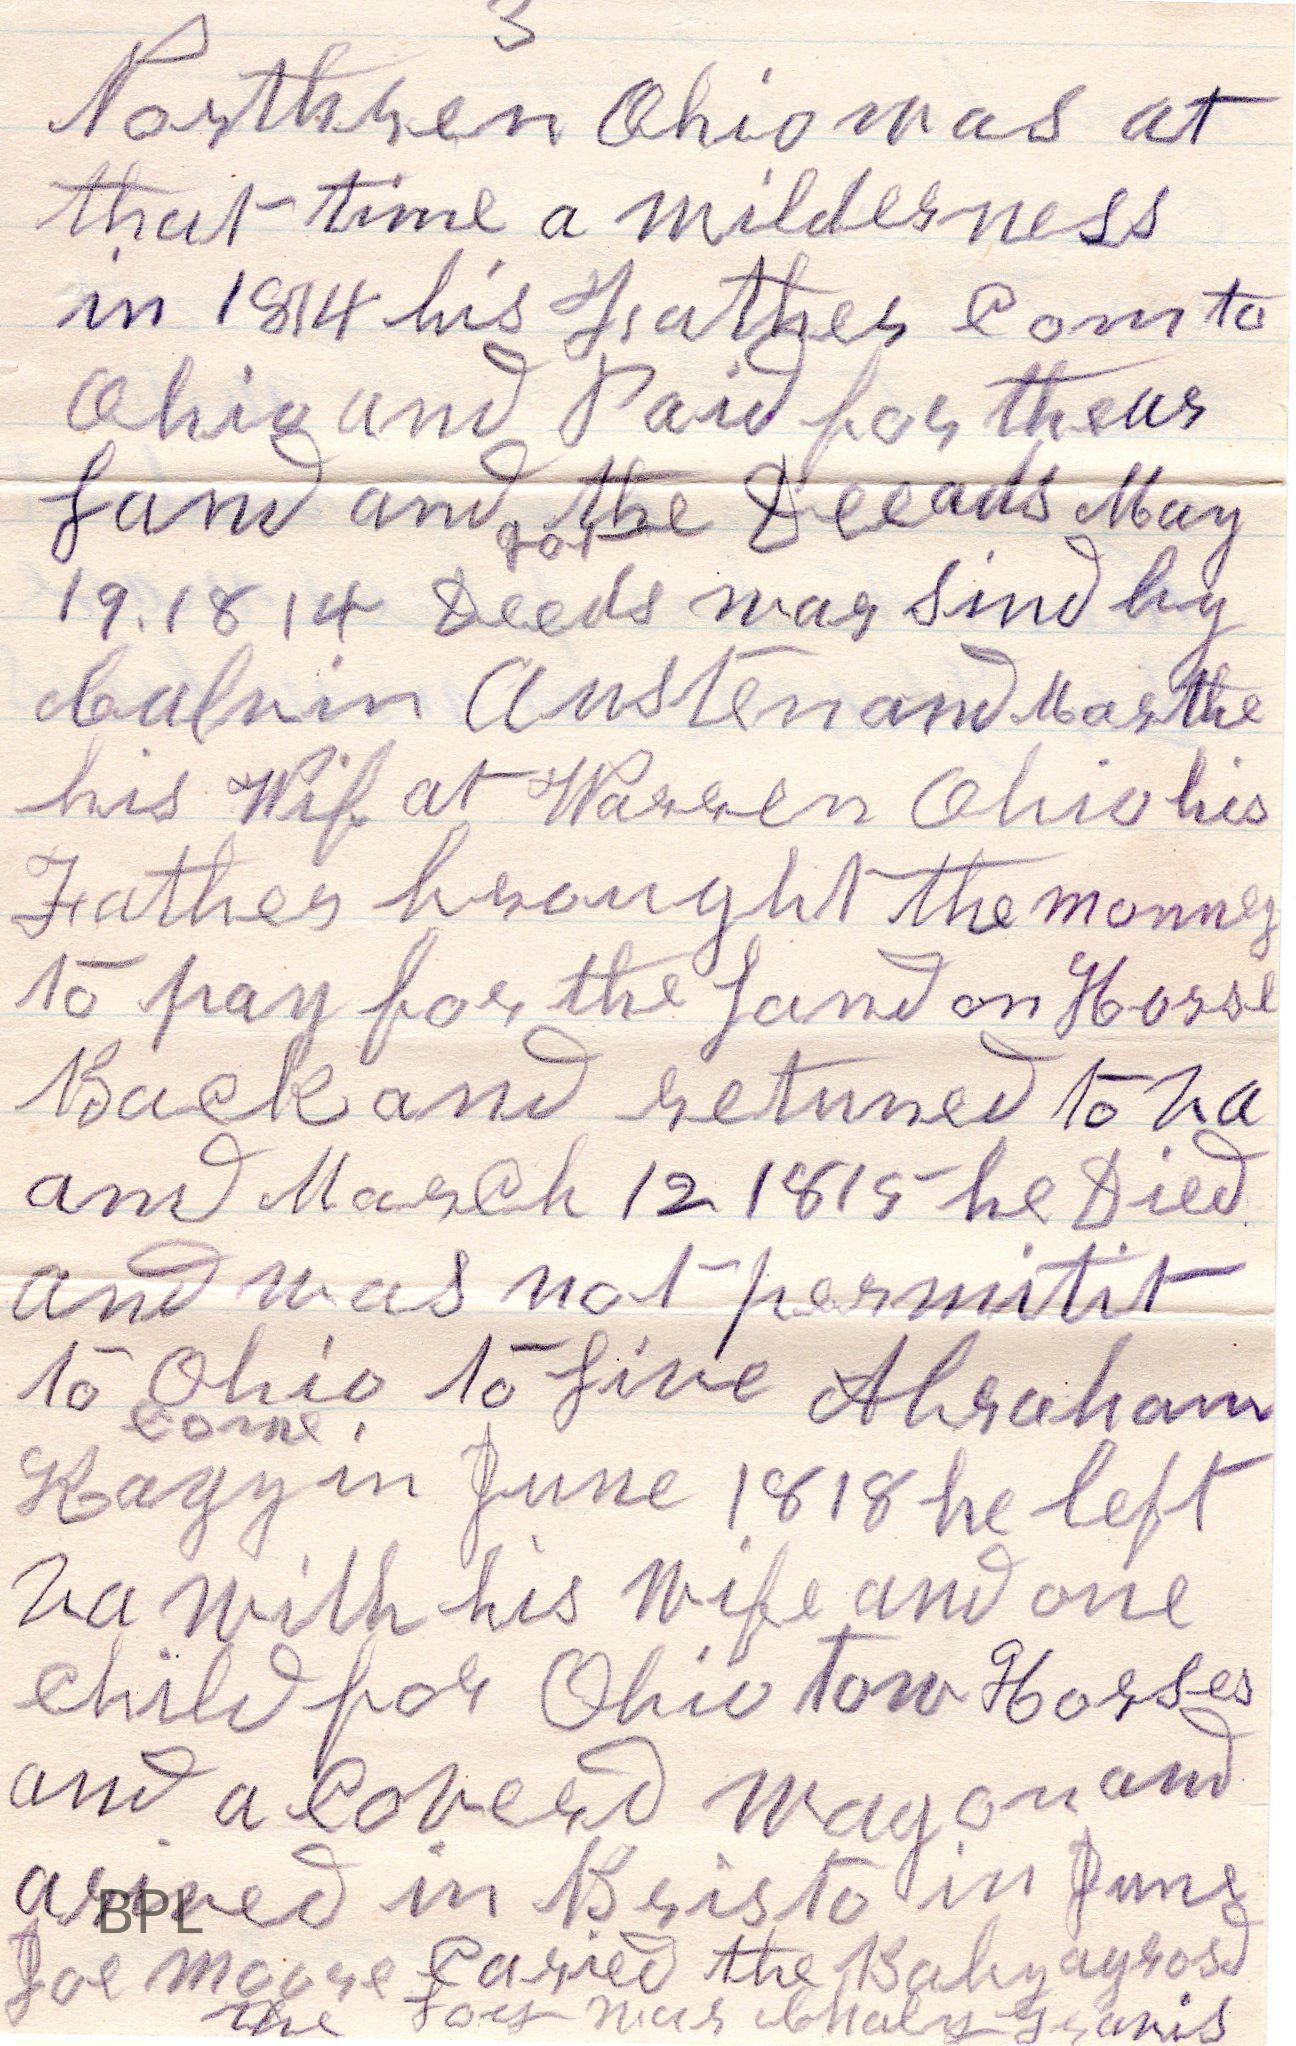 3
Northren Ohio was at
that time a wilderness
in 1814 his Father Com to
Ohio and Paid for the
Land and the Deeads May
got
19.1814 Deeds was Sind by
Calvin Austen and Marthe
his Wif at Warren Ohio his
Father brought the monney
to pay for the Land on Horse
Back and retuned to va
and March 12 1815 he Died
and was not permitit
to Ohio to Live Abraham
come
Kagy in June 1818 he left
va with his wife and one
child for Ohio tow Horses
and a Coverd wagon and
arived in Bristo in June
BPL
Joe Moore Caried the Baby
the was